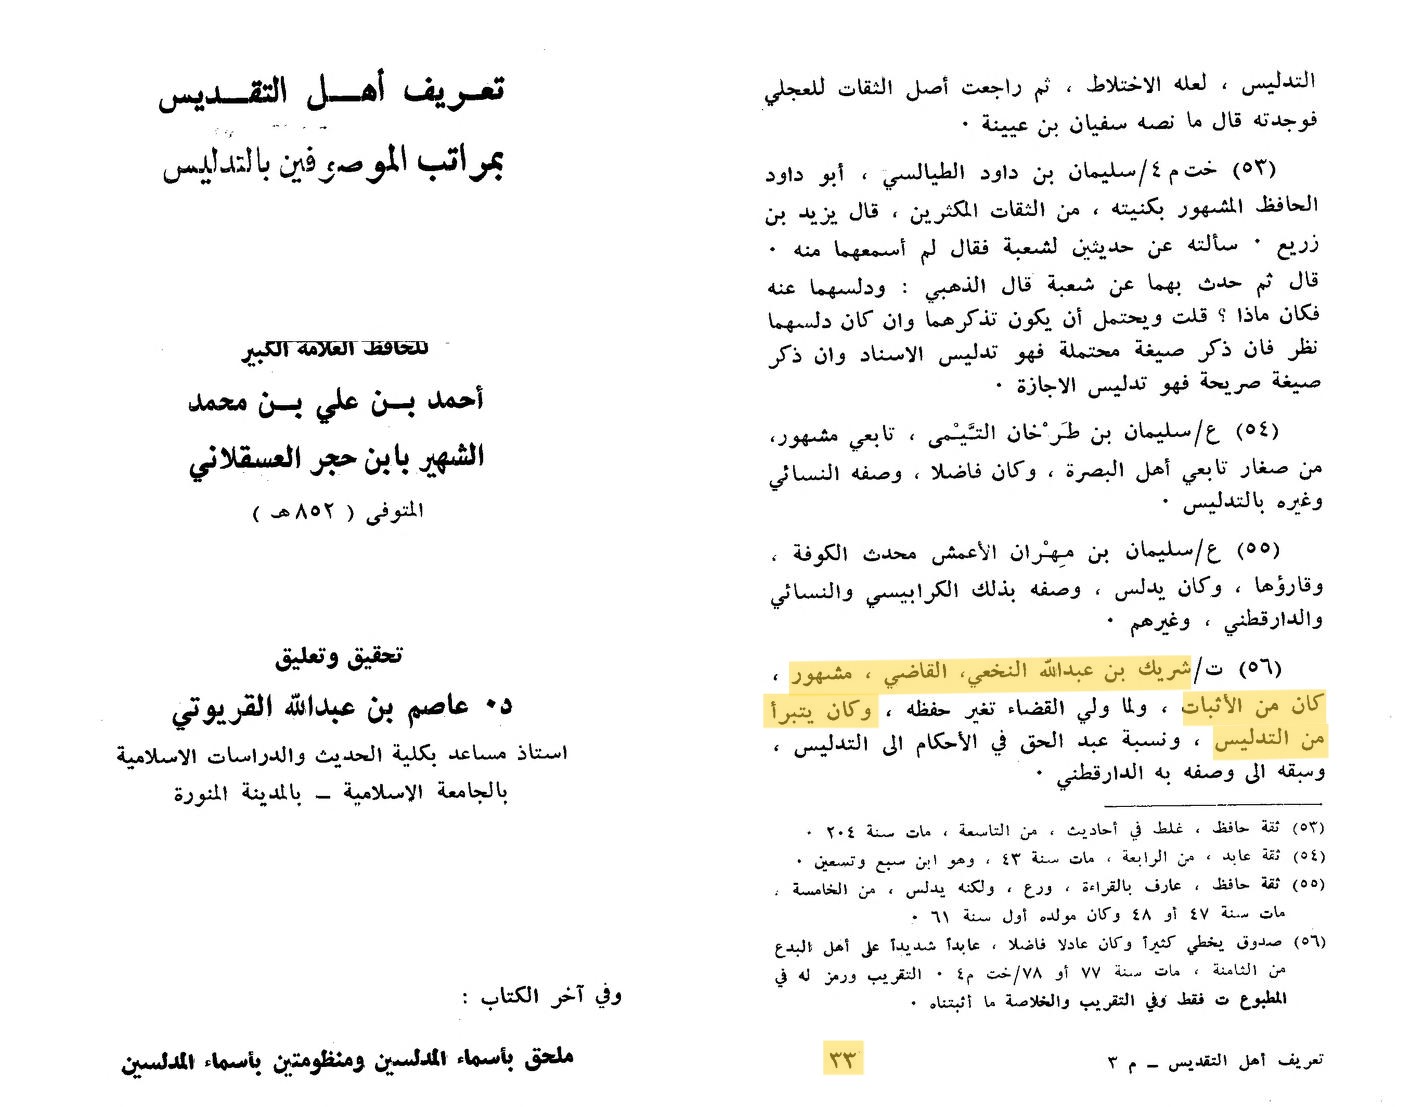 التدليس ، لعله الاختلاط ، ثم راجعت أصل الثقات للعجلي
فوجدته قال ما نصه سفيان بن عيينة ٠
(٥٣) خت م ٤/سليمان بن داود الطيالسي ، أبو داود
الحافظ المشهور بكنيته ، من الثقات المكثرين ، قال يزيد بن
زريع ٠ سألته عن حديثين لشعبة فقال لم أسمعهما منه ٠
قال ثم حدث بهما عن شعبة قال الذهبي : ودلسهما عنه
فكان ماذا ؟ قلت ويحتمل أن يكون تذكرهما وان كان دلسهما
نظر فان ذكر صيغة محتملة فهو تدليس الاسناد وان ذكر
صيغة صريحة فهو تدليس الاجازة ٠
(٥٤) ع/سليمان بن طَرْخان التَّيْمى ، تابعي مشهور،
من صغار تابعي أهل البصرة ، وكان فاضلا ، وصفه النسائي
وغيره بالتدليس ٠
(٥٥) ع/سليمان بن مِهْران الأعمش محدث الكوفة ،
وقارؤها ، وكان يدلس ، وصفه بذلك الكرابيسي والنسائي
والدارقطني ، وغيرهم ٠
(٥٦) ت/شريك بن عبدالله النخعي، القاضي ، مشهور ،
كان من الأثبات ، ولما ولي القضاء تغير حفظه ، وكان يتبرأ
من التدليس ، ونسبة عبد الحق في الأحكام الى التدليس ،
وسبقه الى وصفه به الدارقطني ٠
(٥٣) ثقة حافظ ، غلط في أحاديث ، من التاسعة ، مات سنة ٢٠٤ ٠
(٥٤) ثقة عابد ، من الرابعة ، مات سنة ٤٣ ، وهو ابن سبع وتسعين ٠
(٥٥) ثقة حافظ ، عارف بالقراءة ، ورع ، ولكنه يدلس ، من الخامسة ،
مات سنة ٤٧ أو ٤٨ وكان مولده أول سنة ٦١ ٠
(٥٦) صدوق يخطي كثيراً وكان عادلا فاضلا ، عابداً شديداً على أهل البدع
من الثامنة ، مات سنة ٧٧ أو ٧٨/خت م٤ ٠ التقريب ورمز له في
المطبوع ت فقط وفي التقريب والخلاصة ما أثبتناه ٠
تعريف أهل التقديس ــ م ٣
٣٣
تعـريف أهـــل التقـــديس
بمراتب الموصوفين بالتدليس
للحافظ العلامة الكبير
أحمد بــن علي بــن محمد
الشهير بابن حجر العسقلاني
المتوفى ( ٨٥٢هـ )
تحقيق وتعليق
د٠ عاصم بن عبدالله القريوتي
استاذ مساعد بكلية الحديث والدراسات الاسلامية
بالجامعة الاسلامية ــ بالمدينة المنورة
وفي آخر الكتاب :
ملحق بأسماء المدلسين ومنظومتين بأسماء المدلسين